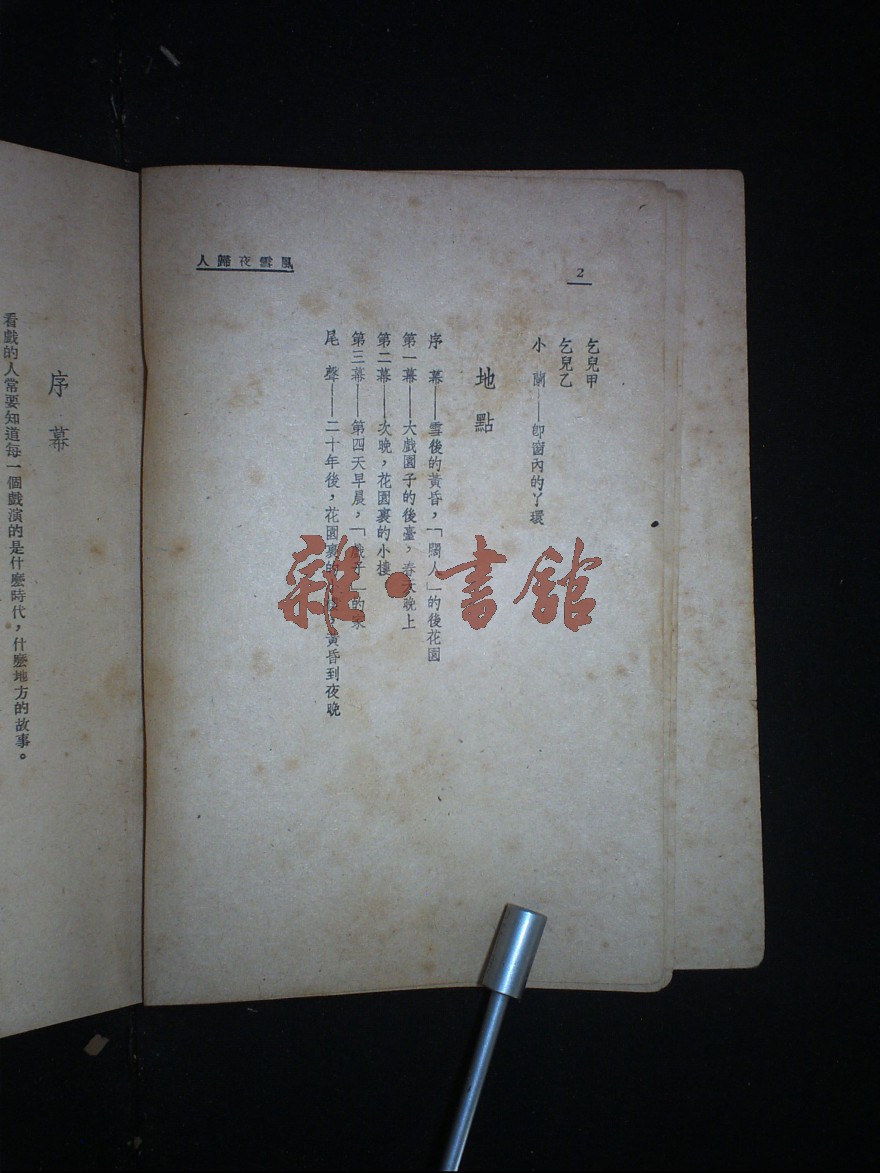 風雪夜歸人
2
乞兒甲
乞兒乙
小 蘭——卽窗內的丫環
地點
序 幕——雪後的黃昏,「闊人」的後花園
第一幕——大戲園子的後臺,春天晚上
第二幕——次晚,花園裏的小樓
第三幕——第四天早晨,「戲子」的家
尾 聲——二十年後,花園裏的 黃昏到夜晚
序幕
看戲的人常要知道每一個戲演的是什麼時代,什麼地方的故事。
雜·書館